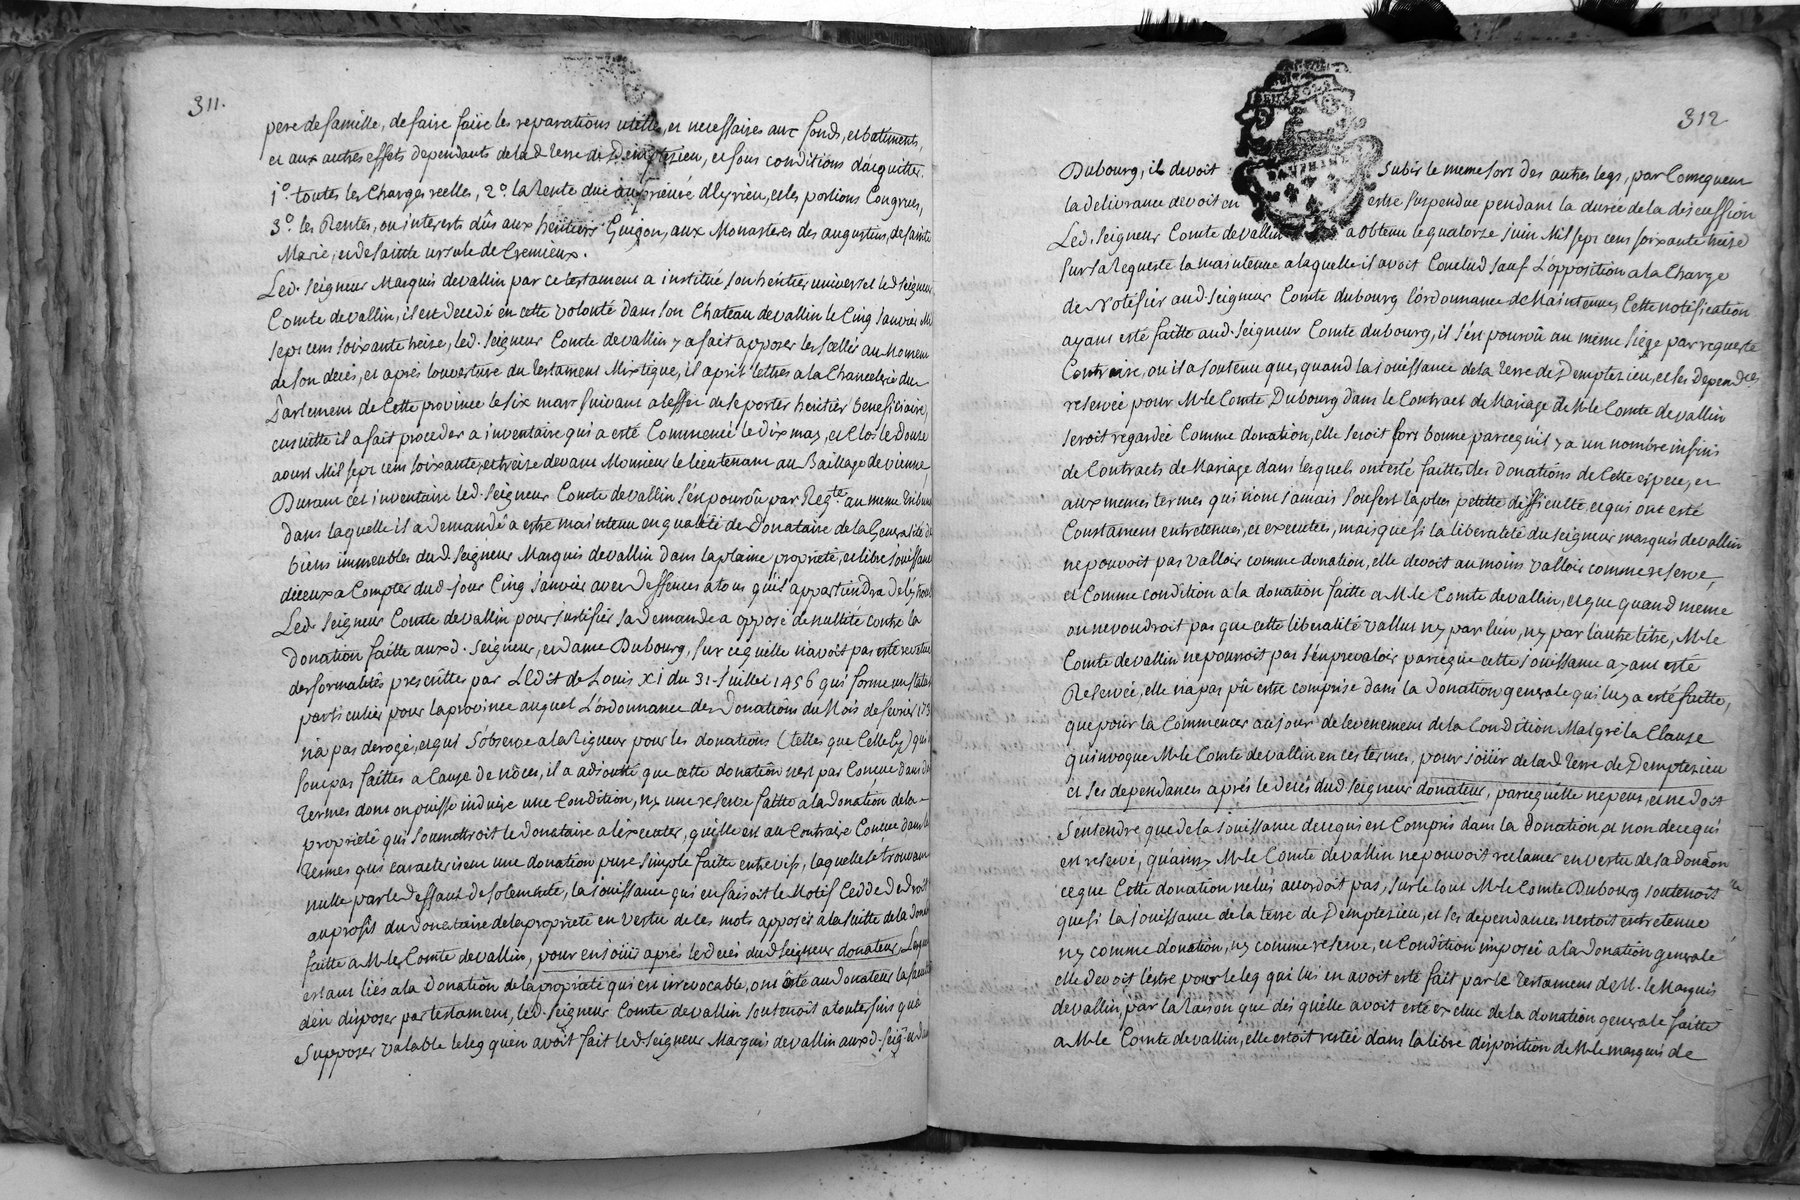 311.
pere de famille, de faire faire les reparations utilles, et necessaires aux fonds, et batiments,
et aux autres effets dependants de lad. Terre de Demptezieu, et sous conditions d'acquitter.
1.° toutes les Charges reelles, 2.° la Rente due au prieuré d'leyrieu, et les portions Congrues,
3.° les Rentes, ou interests dûs aux heritiers Guigon, aux Monasteres des augustins, de sainte
Marie, et de sainte ursule de Cremieux.
Led. Seigneur Marquis devallin par ce testament a institué son heritier universel led seigneur
Comte devallin, il est decedé en cette volonté dans son Chateau devallin le Cinq Janvier Mil
sept cens soixante treize, led. seigneur Comte devallin y a fait apposer les scellés au Moment
de son decés, et aprés l'ouverture du Testament Mistique, il a prit lettres a la Chancelerie du
Parlement de Cette province le six mars suivant a l'effet de se porter heritier Beneficiaire,
ensuitte il a fait proceder a inventaire qui a esté Commencé le dix may, et Clos le Douze
aoust Mil sept cens soixante, et treize devant Monsieur le lieutenant au Baillage de vienne,
Durant cet inventaire led. Seigneur Comte devallin s'en pourvû par Reqte au meme tribunal
dans laquelle il a demandé a estre maintenu en qualité de Donataire de la Generalité des
biens immeubles dud Seigneur Marquis devallin dans la plaine proprieté, et libre jouissance
diceux a Compter dud. jour Cinq Janvier avec deffences a tous qu'il appartiendra de ly troubler
Led. Seigneur Comte devallin pour justifier sa demande a opposé de nullité contre la
donation faitte auxd. Seigneur, et dame Dubourg, sur ce quelle n'avoit pas esté revetue
des formalités prescritte par L'Edit de Louis XI du 31. Juillet 1456 qui forme un statut
particulier pour la province auquel L'ordonnance des Donations du Mois de fevrier 1731
n'a pas derogé, et qui s'observe a la Rigueur pour les donations (telles que Celle Cy) qui ne
sont pas faittes a Cause de nôces, il a adjoutté que cette donation n'est pas Concue dans des
Termes dont on puisse induire une Condition, ny une reserve faitte a la donation de la
proprieté qui soumettroit le donataire a l'executer, qu'elle est au Contraire Concue dans les
Termes qui caracterisent une donation pure simple faitte entrevifs, laquelle se trouvant
nulle par le deffaut de solemnité, la jouissance qui en faisoit le Motif Cedde de droit
au profit du donataire de la proprieté en vertu de ces mots apposés a la suitte de la donation
faitte a Mr le Comte devallin, pour en jouir aprés le decés dud Seigneur donateur. Lesquels
estant liés a la donation de la proprieté qui est irrevocable, ont ôté au donateur la faculté
d'en disposer par testament, led. Seigneur Comte devallin soutenoit a toutes fins que
supposer valable le leg qu'en avoit fait led. Seigneur Marquis devallin auxd. seigr et dame
312
Dubourg, il devoit subir le meme sort des autres legs, par Consequent
la delivrance devoit en estre suspendue pendant la durée de la discussion
Led. Seigneur Comte devallin a obtenu le quatorze Juin Mil sept cens soixante treize
sur sa Requeste la maintenue a laquelle il avoit Conclud sauf L'opposition a la Charge
de Notifier aud. Seigneur Comte dubourg l'ordonnance de Maintenue, Cette notification
ayant esté faitte aud. Seigneur Comte dubourg, il s'en pourvû au meme siége par requeste
Contraire, ou il a soutenu que, quand la jouissance de la Terre de Demptezieu, et ses dependces
reservée pour Mr le Comte Dubourg dans le Contract de Mariage de Mr le Comte devallin
seroit regardée Comme donation, elle seroit fort bonne parcequ'il y a un nombre infini
de Contracts de Mariage dans lesquels ont esté faittes des donations de Cette espece, et
aux memes termes qui n'ont jamais soufert la plus petitte difficulté, et qui ont esté
Constament entretenues, et executées, mais que si la liberalité du seigneur marquis devallin
ne pouvoit pas valloir comme donation, elle devoit au moins valloir comme reserve,
et Comme condition a la donation faitte a Mr le Comte devallin, et que quand meme
on ne voudroit pas que cette liberalité vallut ny par l'un, ny par l'autre titre, Mr le
Comte devallin ne pourroit pas s'en prevaloir parceque cette jouissance ayant esté
Reservée, elle n'a pas pû estre comprise dans la donation generale qui luy a esté faitte,
que pour la Commencer au jour de levenement de la Condition Malgré la Clause
qu'invoque Mr le Comte devallin en ces termes, pour joüir de lad Terre de Demptezieu
et ses dependances aprés le decés dud seigneur donateur, parcequelle ne peut, et ne doit
s'entendre que de la jouissance de ce qui est Compris dans la donation et non de ce qui
est reservé, qu'ainsy Mr le Comte devallin ne pouvoit reclamer en vertu de sa donaôn
ce que Cette donation ne lui accordoit pas, sur le tout Mr le Comte Dubourg soutenoit
que si la jouissance de la terre de Demptezieu, et ses dependances n'estoit entretenue
ny comme donation, ny comme reserve, et Condition imposée a la donation generale
elle devoit l'estre pour le leg qui lui en avoit esté fait par le Testament de Mr. le Marquis
devallin, par la raison que dés qu'elle avoit esté exclue de la donation generale faitte
a Mr le Comte devallin, elle estoit restée dans la libre disposition de Mr le marquis de